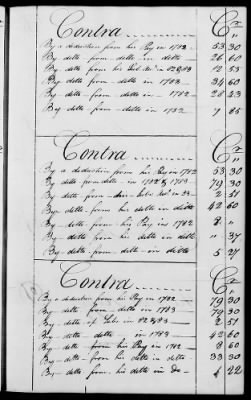 Contra Cr
By a deduction from his Pay in 1782 53 30
By ditto from ditto in ditto 26 60
By ditto from his in 82 & 83 12 53
By ditto from ditto in 1783 34 60
By ditto from ditto in 28 43
By ditto from ditto in 1782 7 85
Contra Cr
By a deduction from his Pay in 1782 53 30
By ditto from ditto in 1782 & 1783 79 30
By ditto from in 33 2 51
By ditto from his ditto in ditto 42 60
By ditto from his Pay in 1782 8 "
By ditto from his ditto in ditto " 37
By ditto from ditto in ditto 5 27
Contra Cr
By a deduction from his Pay in 1782 79 30
By ditto from ditto in 1783 79 30
By ditto of Subs in 82 & 83 2 51
By ditto ditto in 1783 42 60
By ditto from his Pay in 1782 8 60
By ditto from his ditto in ditto 33 30
By ditto from his ditto in Do 4 22